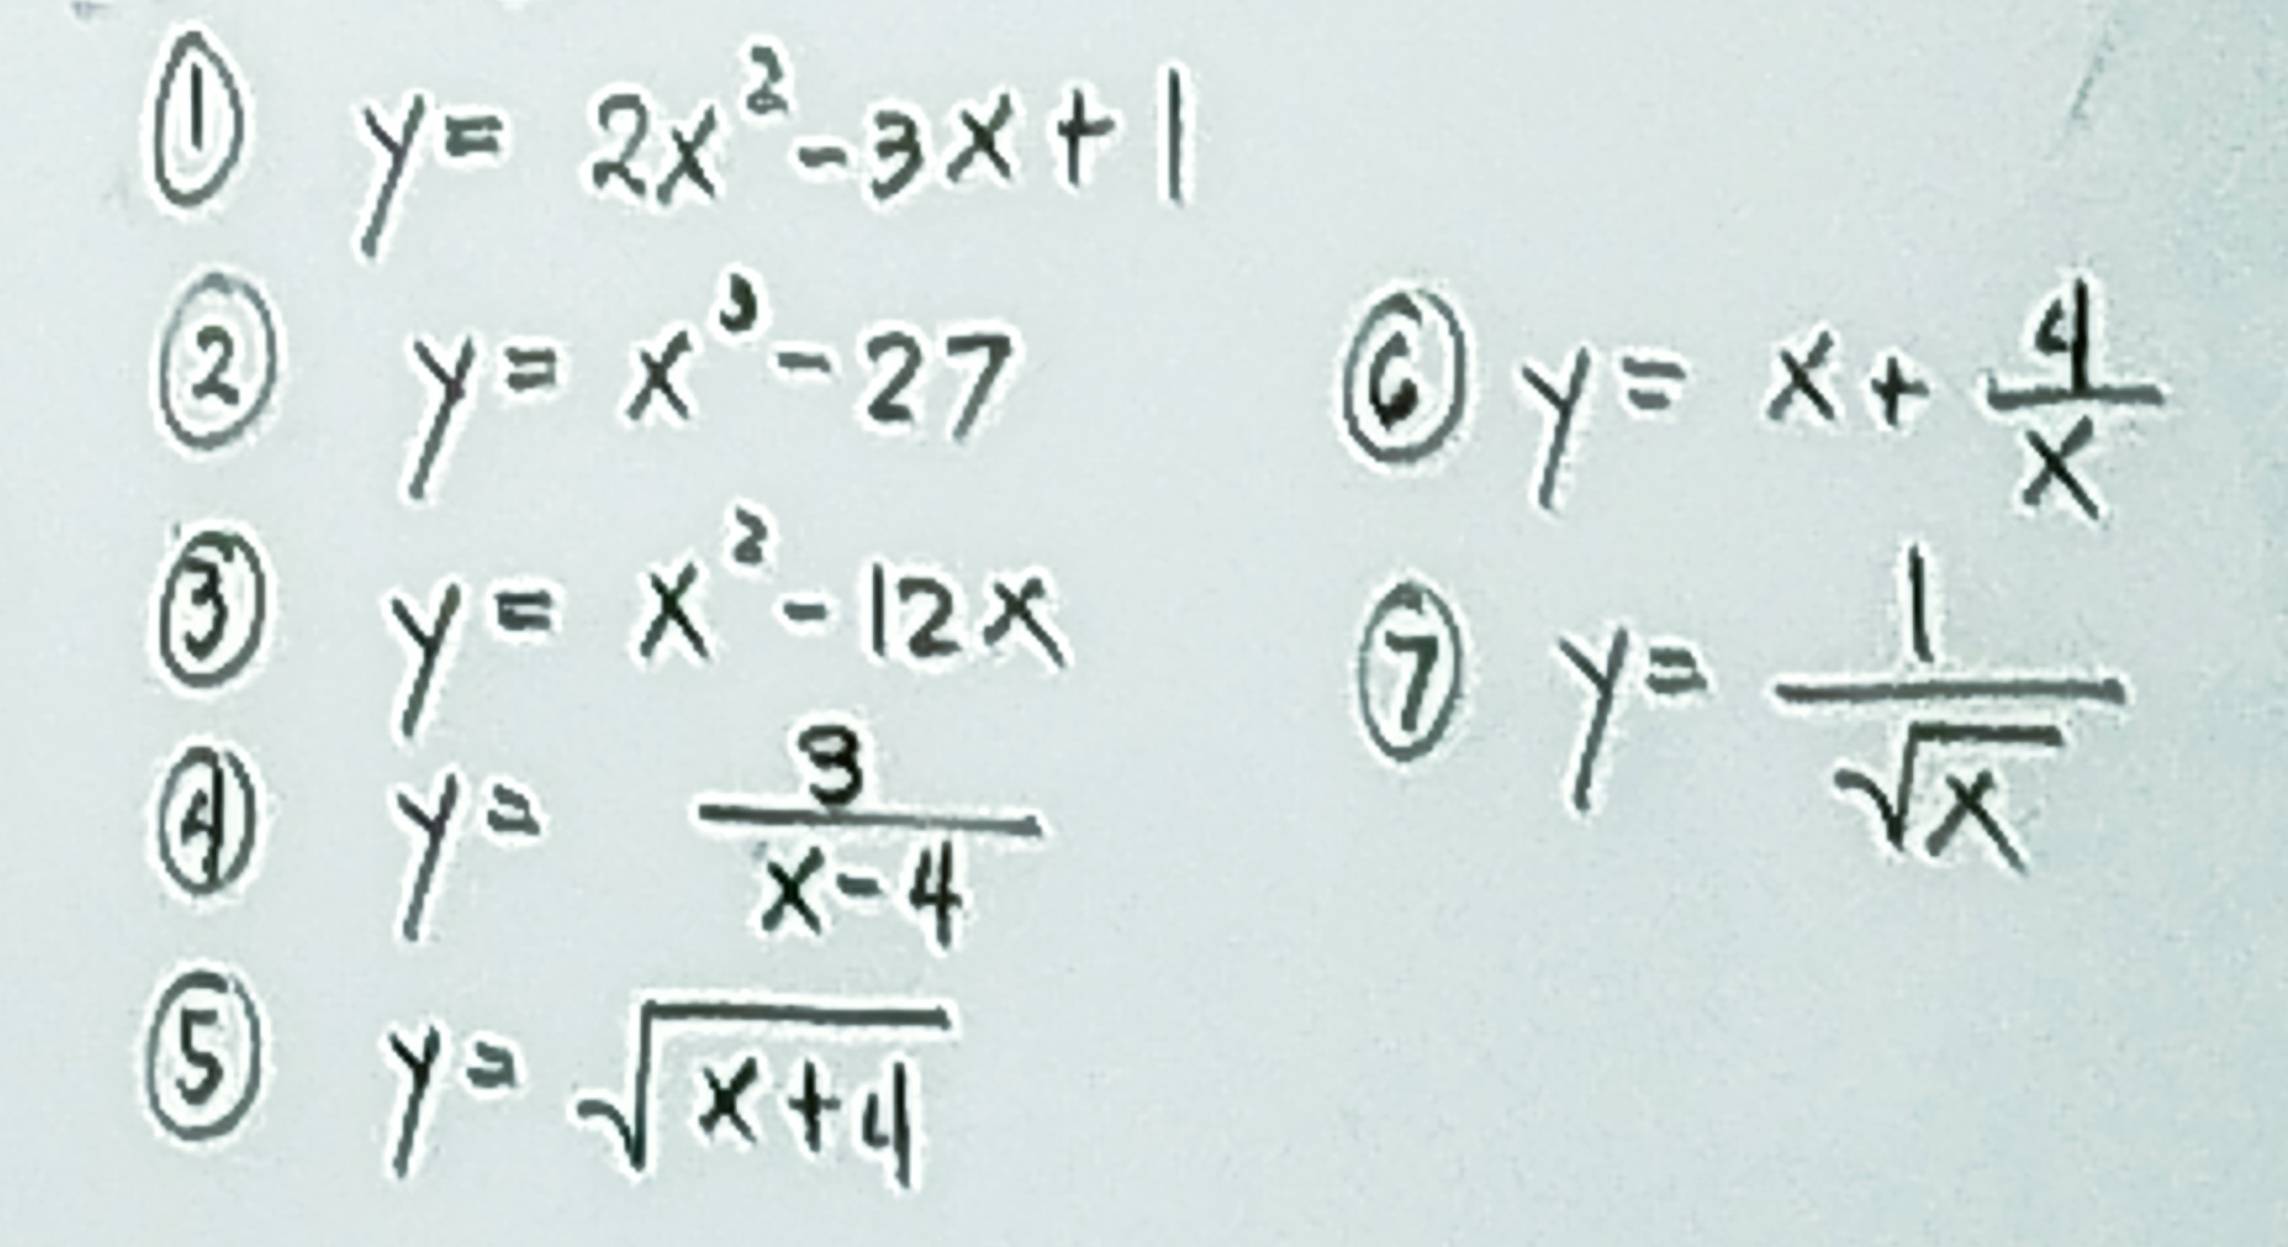 ① y = 2x² - 3x + 1
② y = x³ - 27
③ y = x² - 12x
④ y = 3/(x - 4)
⑤ y = √(x + 4)
⑥ y = x + 4/x
⑦ y = 1/√x